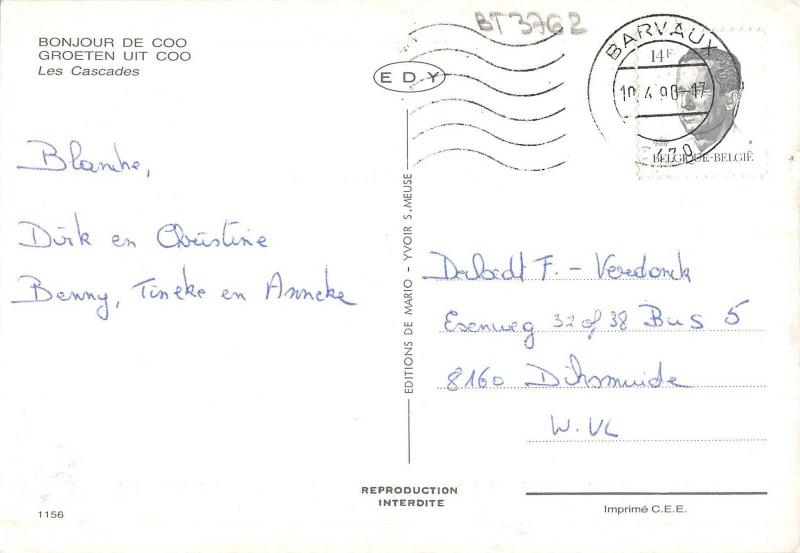 BONJOUR DE COO
GROETEN UIT COO
Les Cascades
BT 3762
EDY
BARVAUX
14F
10.4.90-17
BELGIQUE-BELGIË
Blanche,
Dirk en Christine
Benny, Tineke en Anneke
EDITIONS DE MARIO - YVOIR S. MEUSE
F. - Veredonck
Esenweg 32 of 38 Bus 5
8160 Diksmuide
W.VL
REPRODUCTION
INTERDITE
1156
Imprimé C.E.E.